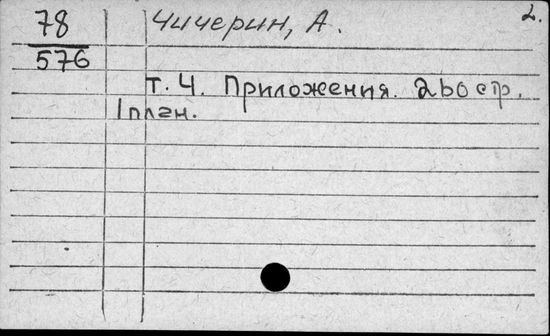 78 Чичерин, А. 2.
576
т. 4. Приложения. 260 стр.
1 план.